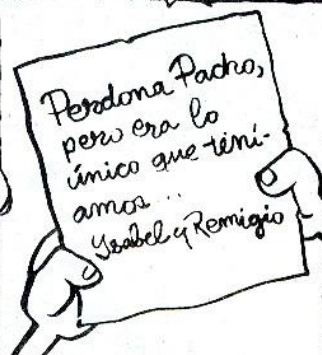 Perdona Pacho,
pero era lo
único que tení-
amos...
Ysabel y Remigio